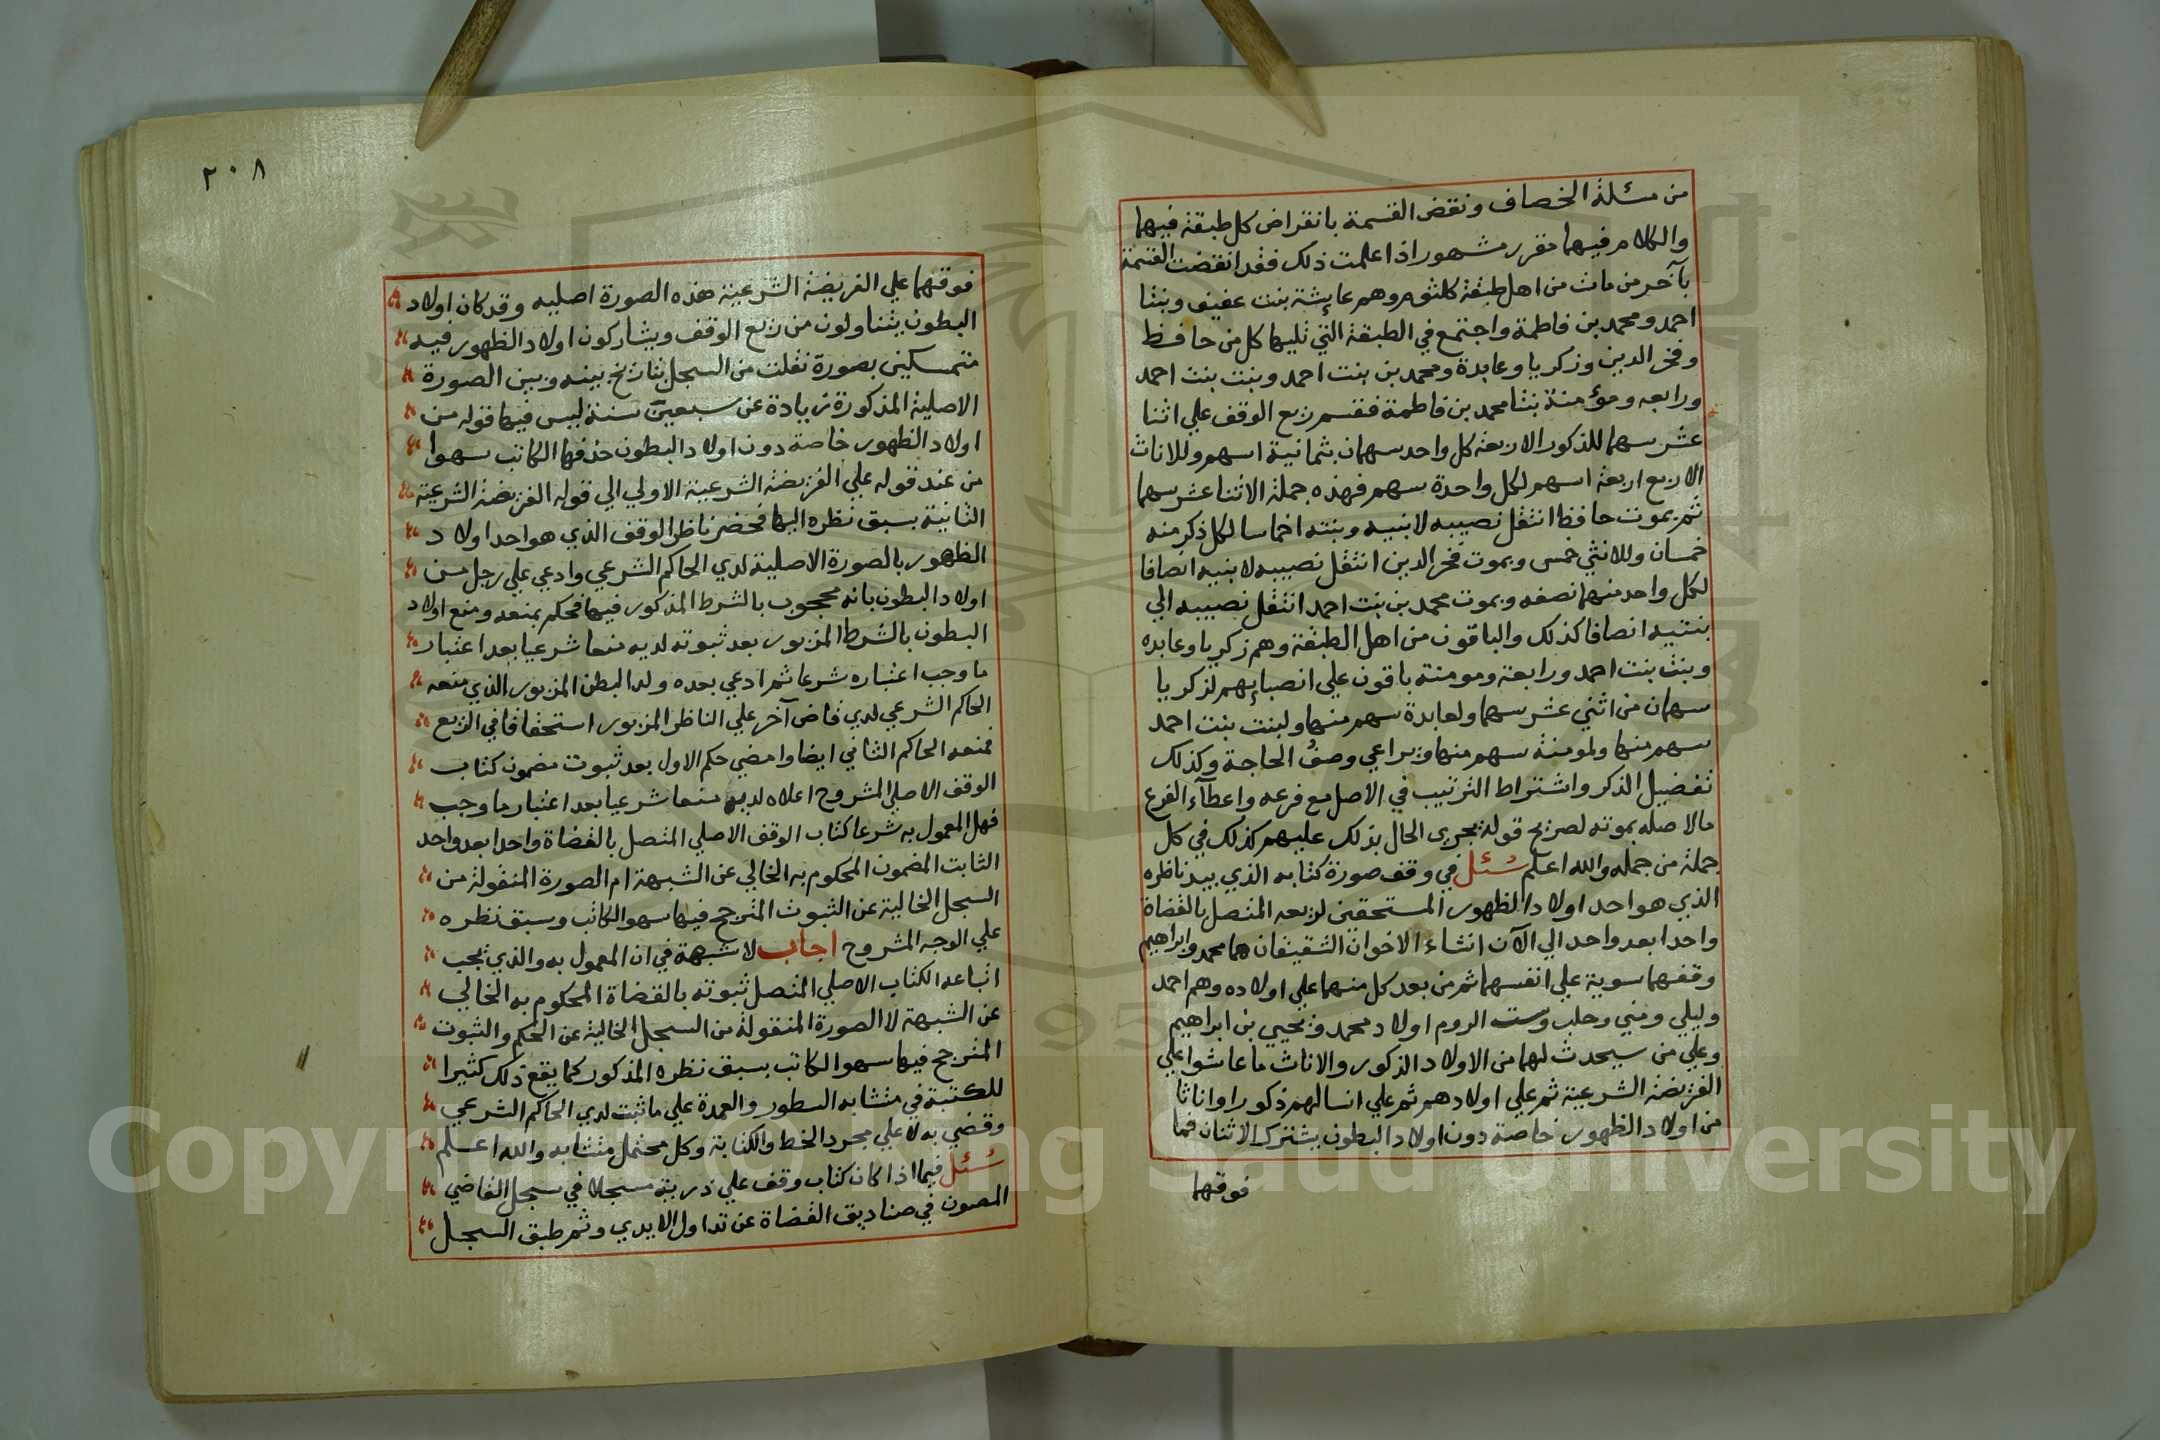 من مسئلة الخصاف ونقض القسمة بانقراض كل طبقة فيها
والكلام فيها مقرر مشهور اذا علمت ذلك فقد انقضت القسمة
بآخر من مات من اهل طبقة كلثوم وهم عايشة بنت عفيف وبنتا
احمد ومحمد بن فاطمة واجتمع في الطبقة التي تليها كل من حافظ
وفخر الدين وزكريا وعابدة ومحمد بن بنت احمد وبنت بنت احمد
ورابعه ومؤمنة بنتا محمد بن فاطمة فقسم ريع الوقف علي اثنا
عشر سهما للذكور الاربعة كل واحد سهمان بثمانية اسهم وللاناث
الاربع اربعة اسهم لكل واحدة سهم فهذه جملة الاثنا عشر سهما
ثم بموت حافظ انتقل نصيبه لابنيه وبنته اخماسا لكل ذكر منه
خمسان وللانثي خمس وبموت فخر الدين انتقل نصيبه لابنيه انصافا
لكل واحد منهما نصفه وبموت محمد بن بنت احمد انتقل نصيبه الي
بنتيه انصافا كذلك والباقون من اهل الطبقة وهم زكريا وعابده
وبنت بنت احمد ورابعة ومومنة باقون علي انصبايهم لزكريا
سهمان من اثني عشر سهما ولعابدة سهم منها ولبنت بنت احمد
سهم منها ولمومنة سهم منها ويراعي وصف الحاجة وكذلك
تفضيل الذكر واشتراط الترتيب في الاصل مع فرعه واعطآء الفرع
مالاصله بموته لصريح قوله يجري الحال بذلك عليهم كذلك في كل
جملة من جمله والله اعلم سُئل في وقف صورة كتابه الذي بيد ناظره
الذي هو احد اولاد الظهور المستحقين لريعه المتصل بالقضاة
واحدا بعد واحد الي الآن انشاء الاخوان الشقيقان هما محمد وابراهيم
وقفهما سوية علي انفسهما ثم من بعد كل منهما علي اولاده وهم احمد
وليلي ومني وحلب وست الروم اولاد محمد ويحيي بن ابراهيم
وعلي من سيحدث لهما من الاولاد الذكور والاناث ما عاشوا علي
الفريضة الشرعية ثم علي اولادهم ثم علي انسالهم ذكورا واناثا
من اولاد الظهور خاصة دون اولاد البطون يشترك الاثنان فما
فوقها
٢٠٨
فوقهما علي الفريضة الشرعية هذه الصورة اصليه وقد كان اولاد
البطون يتناولون من ريع الوقف ويشاركون اولاد الظهور فيه
متمسكين بصورة نقلت من السجل بتاريخ بينه وبين الصورة
الاصلية المذكورة زيادة عن سبعين سنة ليس فيها قوله من
اولاد الظهور خاصة دون اولاد البطون حذفها الكاتب سهوا
من عند قوله علي الفريضة الشرعية الاولي الي قوله الفريضة الشرعية
الثانية بسبق نظره اليها فحضر ناظر الوقف الذي هو احد اولاد
الظهور بالصورة الاصلية لدي الحاكم الشرعي وادعي علي رجل من
اولاد البطون بانه محجوب بالشرط المذكور فيها فحكم بمنعه ومنع اولاد
البطون بالشرط المزبور بعد ثبوته لديه منعا شرعيا بعد اعتبار
ما وجب اعتباره شرعا ثم ادعي بعده ولد البطن المزبور الذي منعه
الحاكم الشرعي لدي قاض آخر علي الناظر المزبور استحقاقا في الريع
فمنعه الحاكم الثاني ايضا وامضي حكم الاول بعد ثبوت مضمون كتاب
الوقف الاصلي المشروح اعلاه لديه منعا شرعيا بعد اعتبار ما وجب
فهل المعمول به شرعا كتاب الوقف الاصلي المتصل بالقضاة واحدا بعد واحد
الثابت المضمون المحكوم به الخالي عن الشبهة ام الصورة المنقولة من
السجل الخالية عن الثبوت المترجح فيها سهو الكاتب وسبق نظره
علي الوجه المشروح اجاب لا شبهة في ان المعمول به والذي يجب
اتباعه الكتاب الاصلي المتصل ثبوته بالقضاة المحكوم به الخالي
عن الشبهة لا الصورة المنقولة من السجل الخالية عن الحكم والثبوت
المترجح فيها سهو الكاتب بسبق نظره المذكور كما يقع ذلك كثيرا
للكتبة في متشابه السطور والعمدة علي ما ثبت لدي الحاكم الشرعي
وقضي به لا علي مجرد الخط والكتابة وكل محتمل متشابه والله اعلم
سُئل فيما اذا كان كتاب وقف علي ذرية مسجلا في سجل القاضي
المصون في صناديق القضاة عن تداول الايدي وثم طبق السجل
Copyright © King Saud University